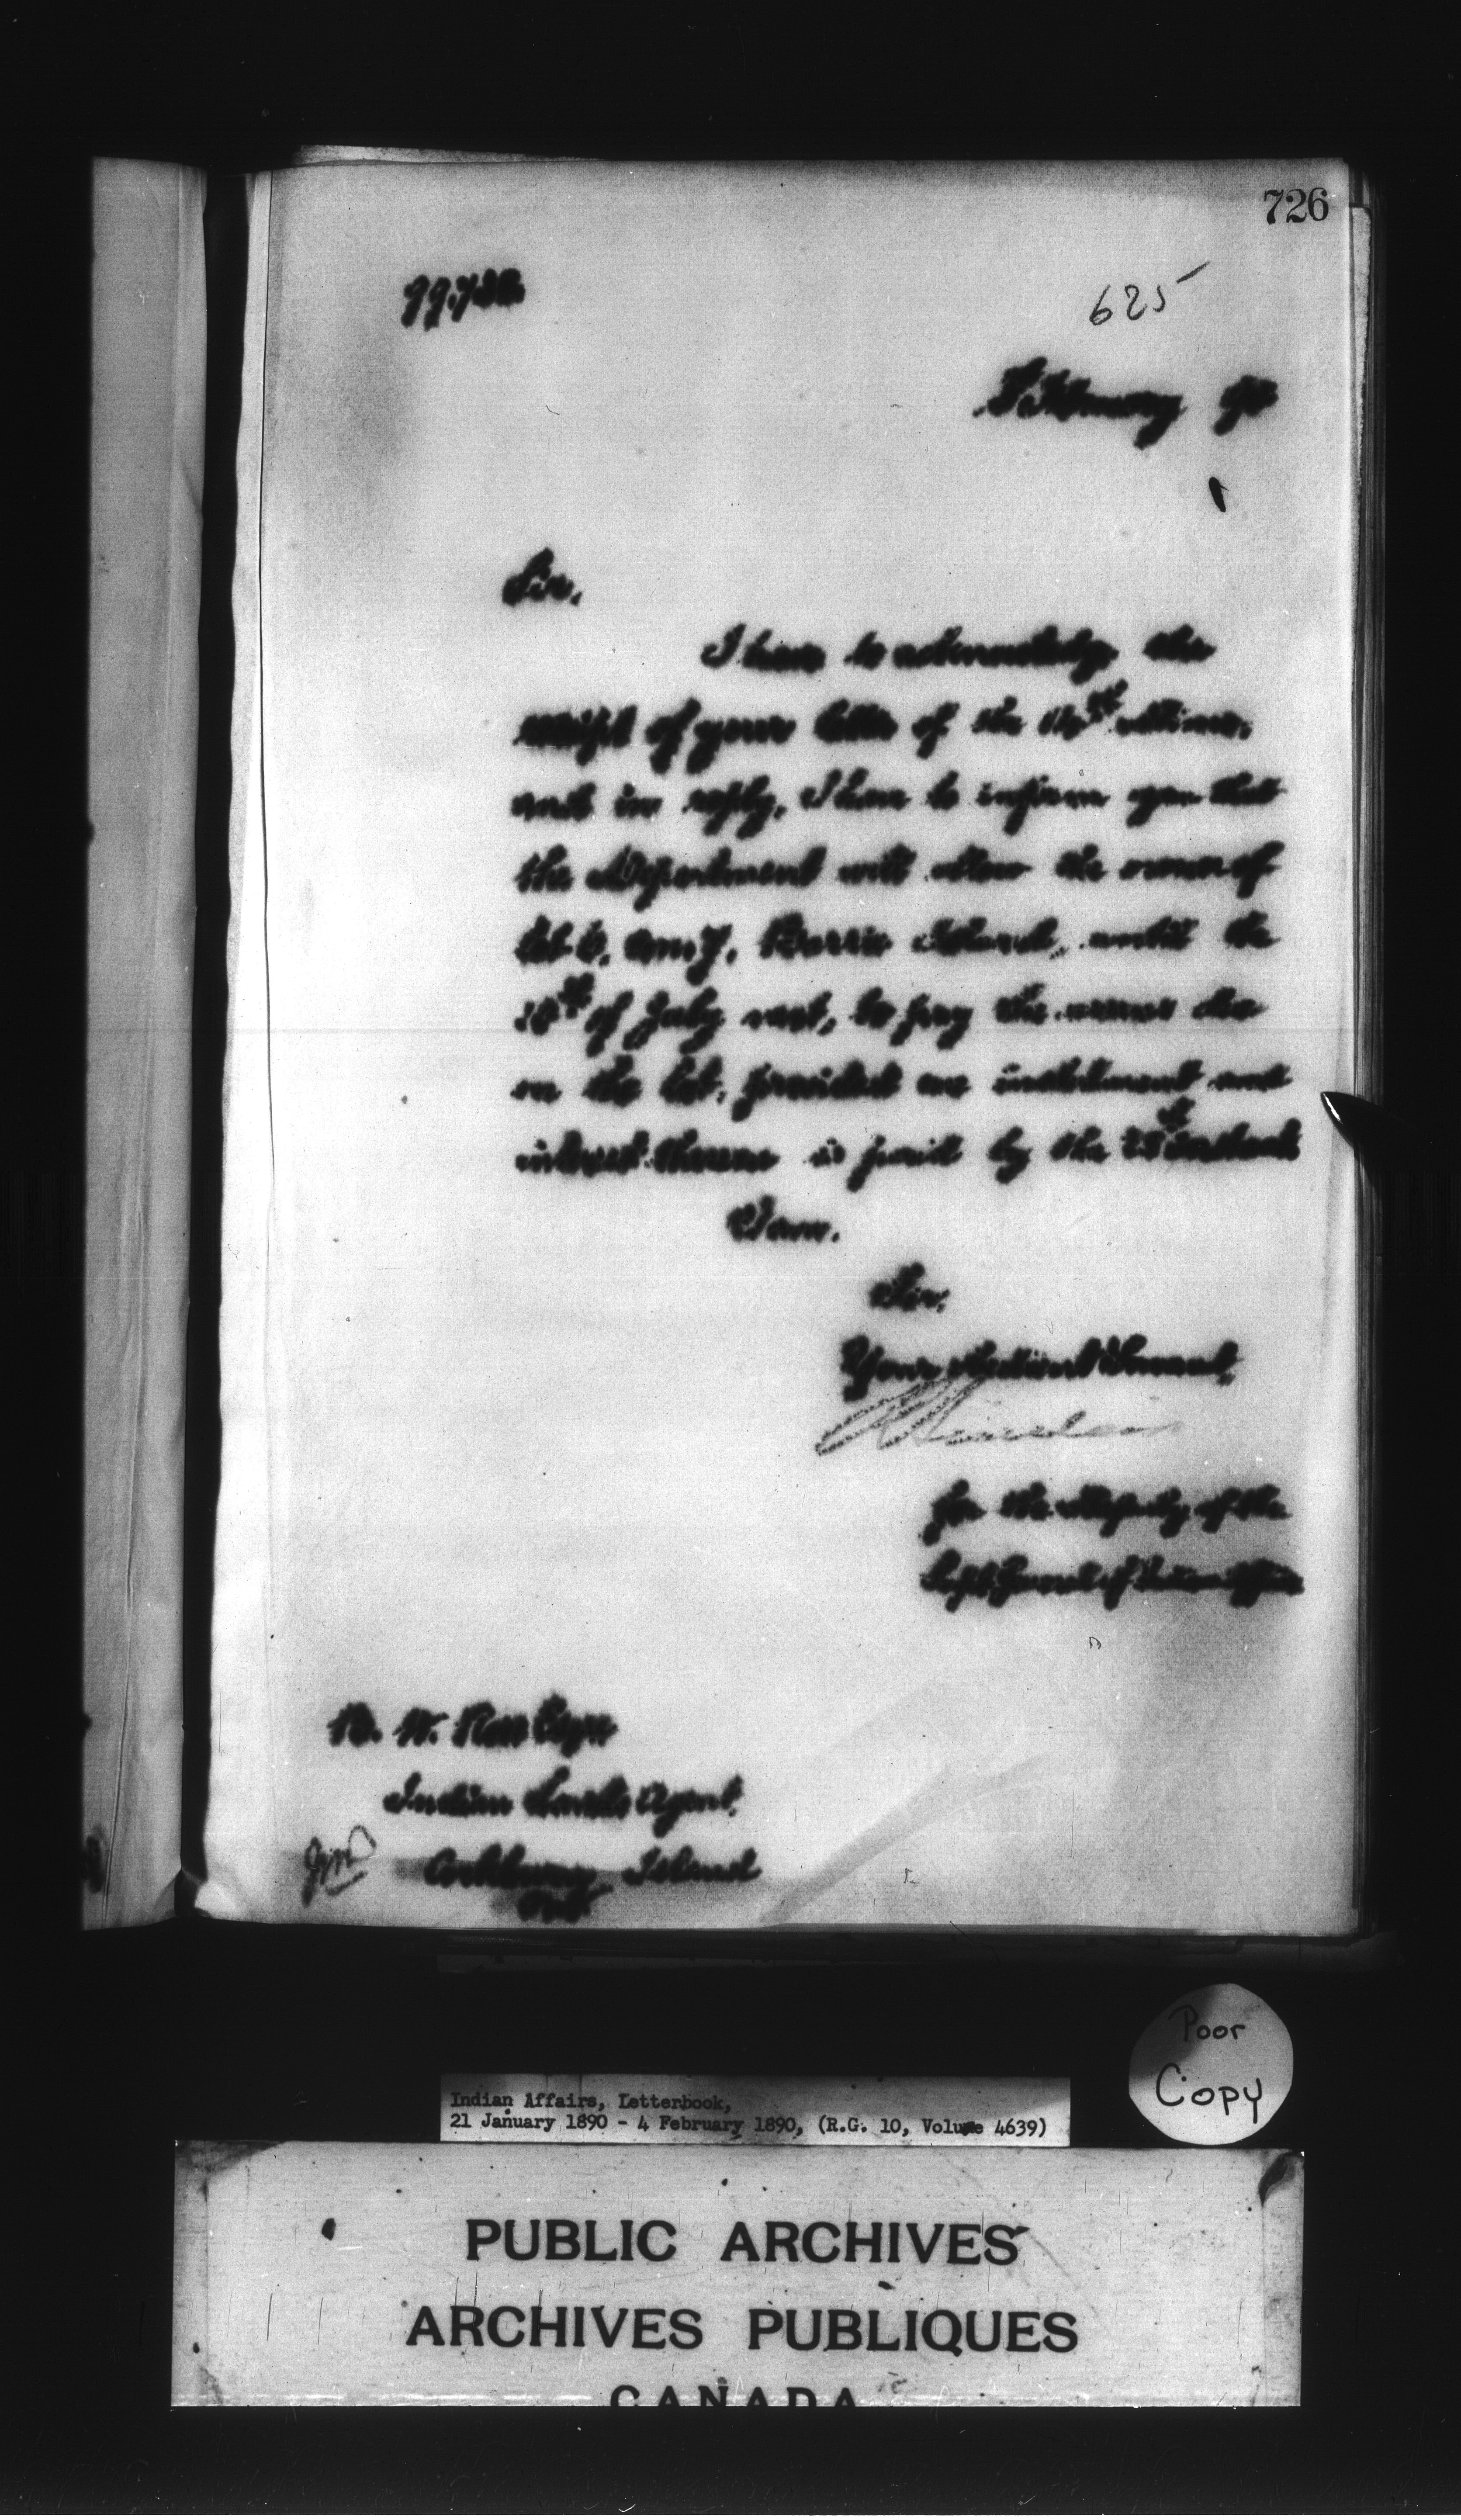 726
625
February 90
Sir,
I have to acknowledge the
receipt of your letter of the 14th ultimo,
and in reply, I have to inform you that
the Department will allow the owner of
Lot 6, Con 7, Barrie Island, until the
of July next, to pay the arrears due
on the lot, provided one instalment and
interest thereon is paid by the 25th instant
I am,
Sir,
Your obedient Servant,
for the Deputy of the
Supt General of Indian Affairs
B. W. Ross Esqre
Indian Lands Agent,
Cockburn Island
Ont
Poor
Copy
Indian Affairs, Letterbook,
21 January 1890 - 4 February 1890, (R.G. 10, Volume 4639)
PUBLIC ARCHIVES
ARCHIVES PUBLIQUES
CANADA